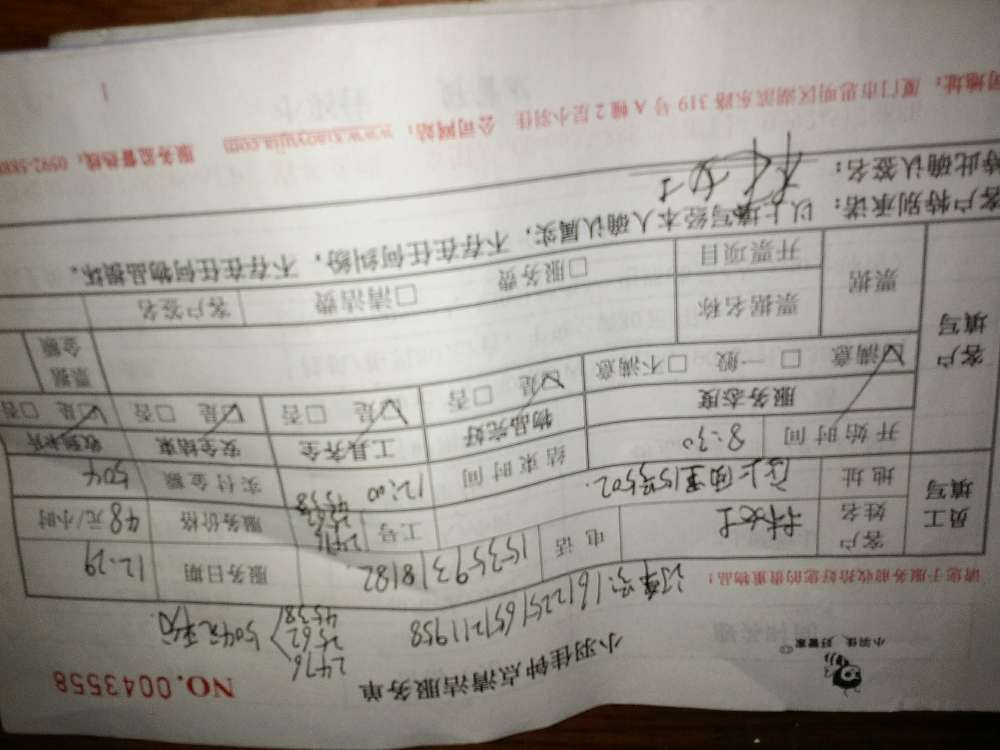 小羽佳 好管家
小羽佳钟点清洁服务单
NO.0043558
订单号:161225165721958
2476
2562
4538
504元
请您于服务前收拾好您的贵重物品!
员工填写
客户姓名
林女士
电话
15359318182
服务日期
12.29
工号
2476
2562
4538
服务价格
48元/小时
地址
15号502.
实付金额
504
开始时间
8:30
结束时间
12:00
客户填写
服务态度
物品完好
工具齐全
安全结束
☑满意 □一般 □不满意
☑是 □否
☑是 □否
☑是 □否
☑是 □否
票据
票据名称
□服务费
□清洁费
票据金额
开票项目
客户签名
客户特别承诺:以上填写经本人确认属实,不存在任何纠纷,不存在任何物品损坏。
特此确认签名:
林女士
厦门市思明区湖滨东路319号A幢2层小羽佳 公司网站:www.xiaoyujia.com 服务监督热线:0592-